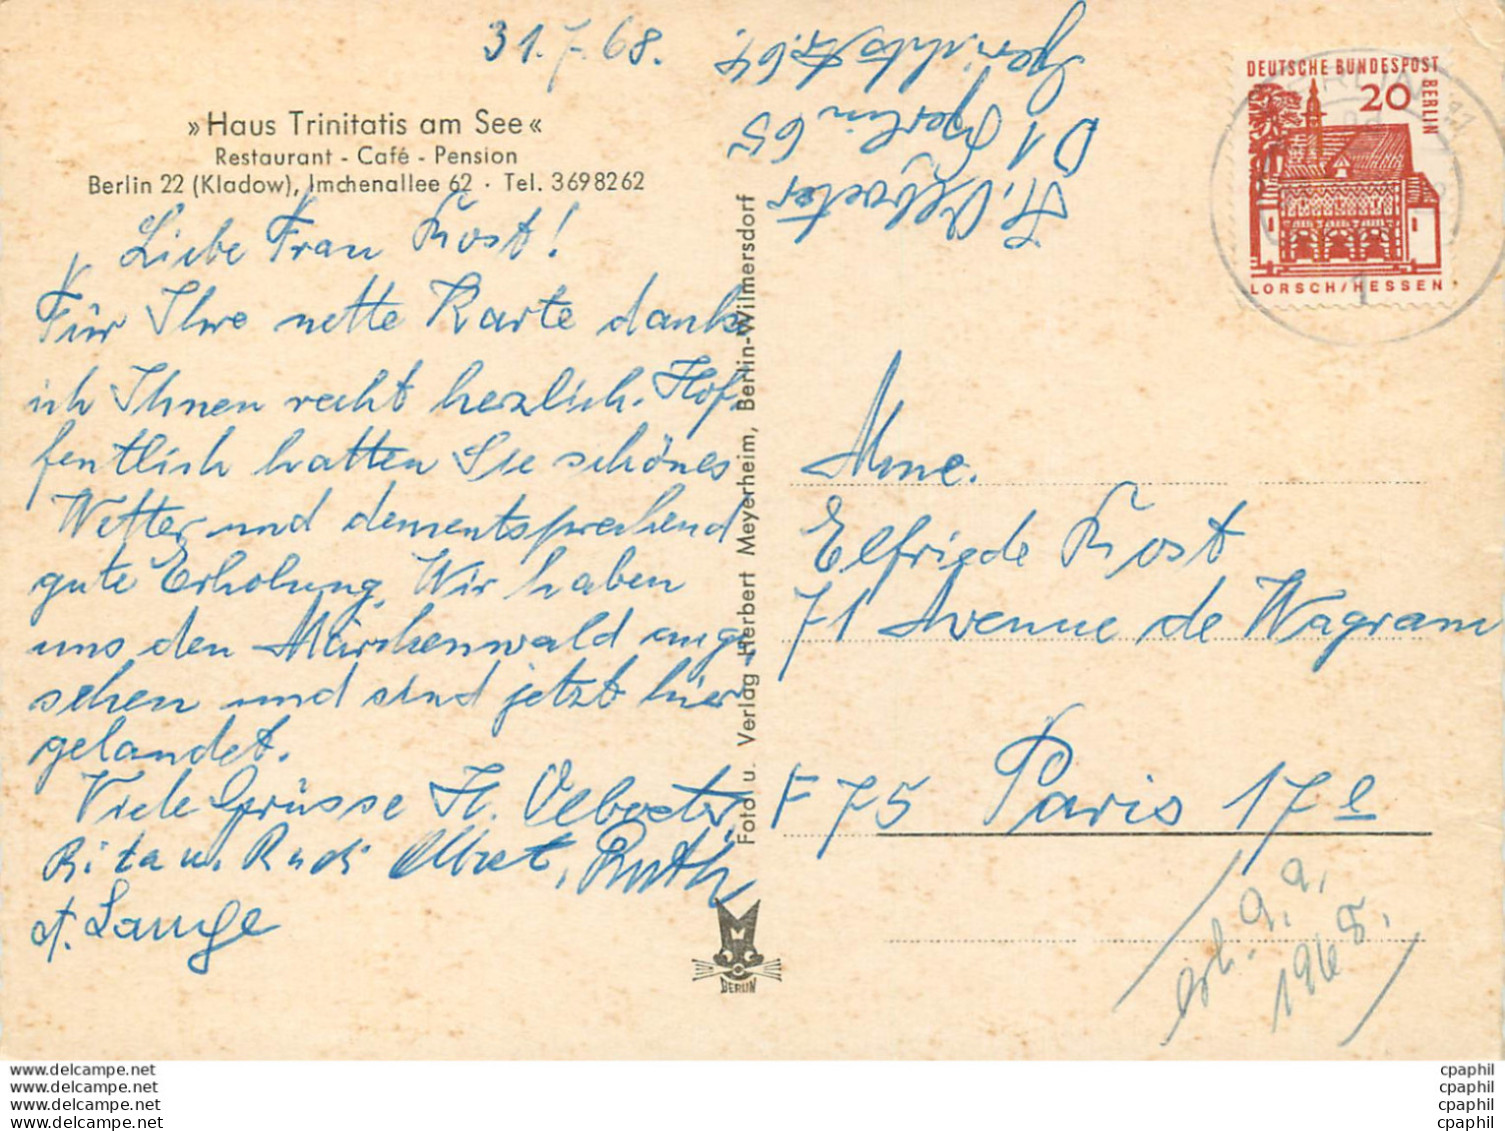 31.7.68.
»Haus Trinitatis am See«
Restaurant - Café - Pension
Berlin 22 (Kladow), Imchenallee 62 · Tel. 3698262
Liebe Frau Kost!
Für Ihre nette Karte danke
ich Ihnen recht herzlich. Hof-
fentlich hatten Sie schönes
Wetter und dementsprechend
gute Erholung. Wir haben
uns den Märchenwald ange-
sehen und sind jetzt hier
gelandet.
Viele Grüsse H.
Rita u. Rudi Ruth
Lange
H.
D 1 Berlin 65
Gerichtstr. 64
Foto u. Verlag Herbert Meyerheim, Berlin-Wilmersdorf
BERLIN
DEUTSCHE BUNDESPOST
BERLIN
20
LORSCH/HESSEN
BERLIN
1
Mme.
Elfriede Kost
71 Avenue de Wagram
F 75 Paris 17e
erh. 9.9.
1968.
www.delcampe.net
www.delcampe.net
www.delcampe.net
www.delcampe.net
cpaphil
cpaphil
cpaphil
cpaphil